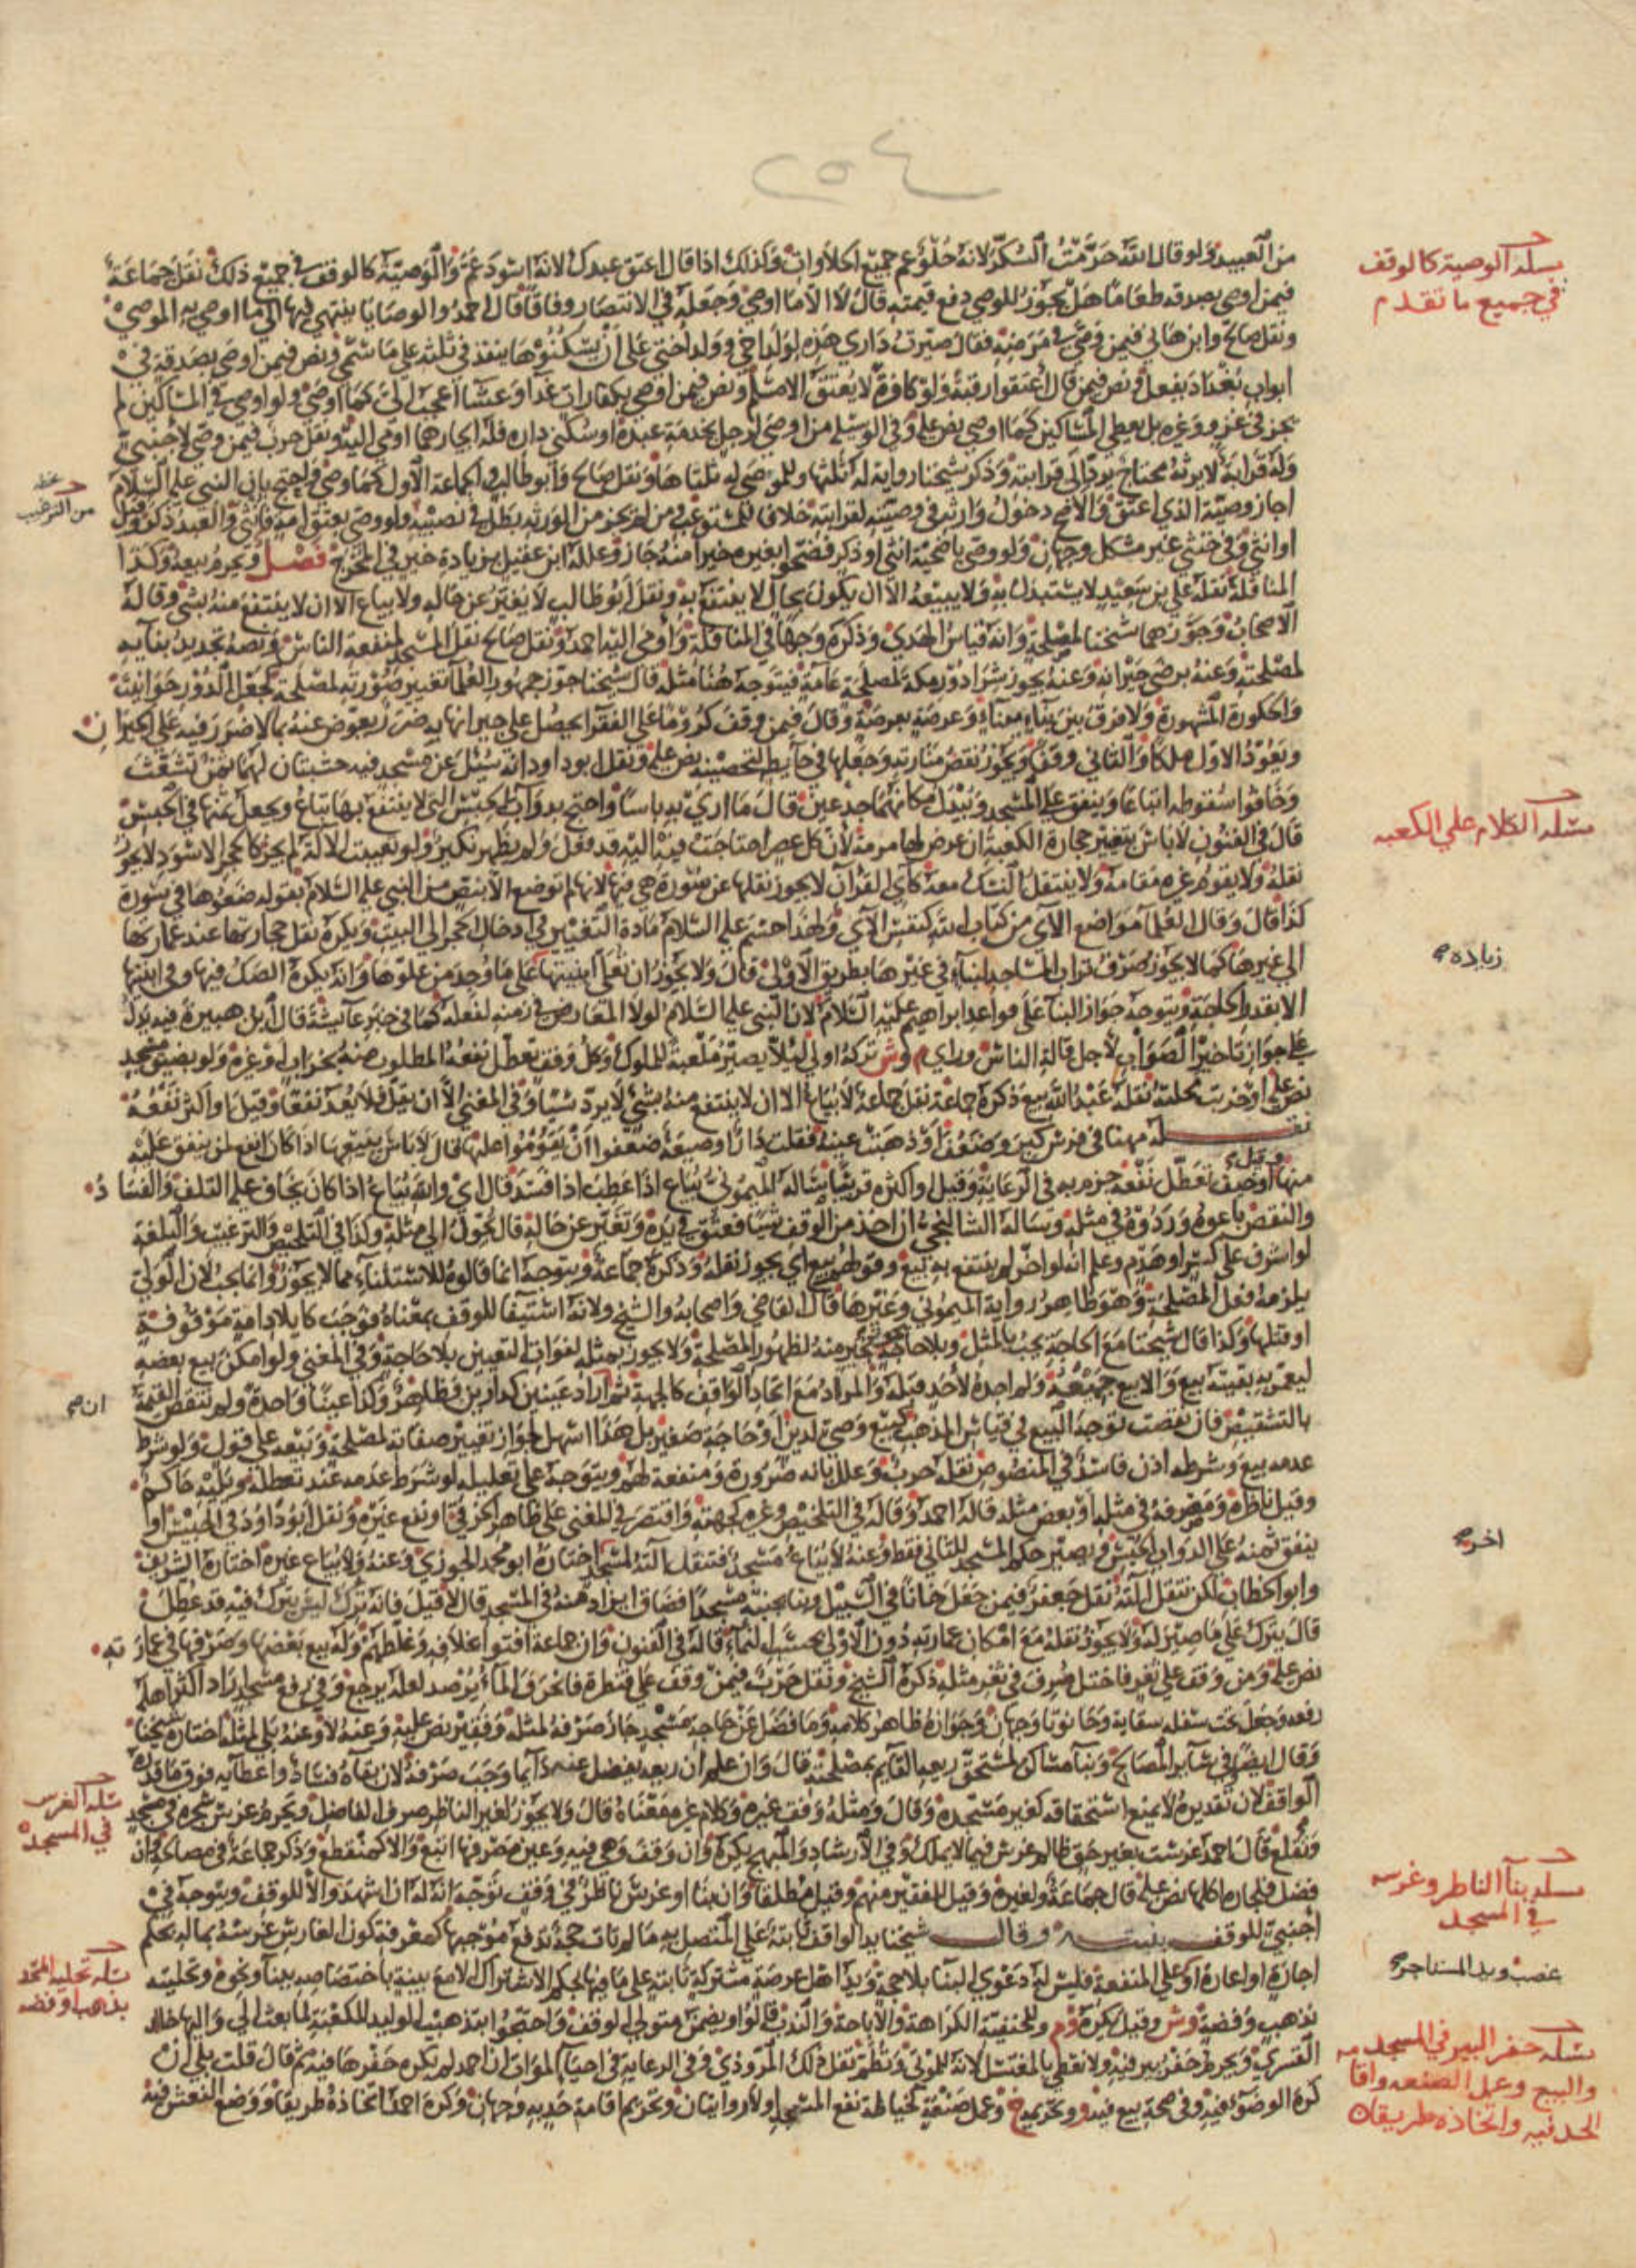 ٢٥٤
من العبيد ولو قال الله حرمت السكر لانه حلو عم جميع اكلا وان وكذلك اذا قال اعتق عبدك لانه اسود عم والوصية كالوقف في جميع ذلك نقل جماعة
فيمن اوصى بصدقه طعاما هل يجوز للموصي دفع قيمته قال لا الا ما اوصى وجعله في الانتصار وفاقا قال احمد والوصايا ينتهى فيها الى ما اوصى به الموصي
ونقل صالح وابن هاني فيمن وصى في مرضه فقال صيرت داري هذه لولد اخي وولد اختي على ان يسكنوها ينفذ في ثلثه على ما سمى ونص فيمن اوصى بصدقة في
ابواب بغداد يفعل ونص فيمن قال اعتقوا رقبة ولو كافرة لا يعتق الا مسلم ونص فيمن اوصى بكفارات غدا وعشا اعجب الي كما اوصى ولو اوصى في المساكين لم
يجز في غزو وغيره بل يعطى المساكين كما اوصى نص عليه وفي الوسيلة من اوصى لرجل بخدمة عبده او سكنى داره فله ايجارهما اومى اليه ونقل حرب فيمن وصى لاجنبي
وله قرابة لا يرثه محتاج يرد الى قرابته وذكر شيخنا رواية له ثلثها وللموصى له ثلثاها ونقل صالح وابو طالب في الجماعة الاول كما وصى واحتج بان النبي عليه السلام
اجاز وصية الذي اعتق والاصح دخول وارثه في وصيته لقرابته خلافا للمستوعب ومن لم يجز من الورثه بطل في نصيبه ولو وصى بعتق امة فانثى والعبد ذكر وقيل
او انثى وفي خنثى غير مشكل وجهان ولو وصى باضحية انثى او ذكر فضحوا بغيره خيرا منه جاز وعلله ابن عقيل بزيادة خير في المخرج فصل ويحرم بيعه وكذا
المناقلة نقله علي بن سعيد لا يستبدل به ولا يبيعه الا ان يكون بحال لا ينتفع به ونقل ابو طالب لا يغير عن حاله ولا يباع الا ان لا ينتفع منه بشي وقاله
الاصحاب وجوزهما شيخنا لمصلحة وانه قياس الهدي وذكره وجها في المناقلة واومى اليه احمد ونقل صالح نقل المسجد لمنفعة الناس ونصه تجديد بنايه
لمصلحته وعنه برضى جيرانه وعنه يجوز شرا دور مكة لمصلحة عامة فيتوجه هنا مثله قال شيخنا جوز جمهور العلما تغيير صورته لمصلحة كجعل الدور حوانيت
والحكورة المشهورة ولا فرق بين بناء ببناء وعرصة بعرصة وقال فيمن وقف كروما على الفقرا يحصل على جيرانها به ضرر يعوض عنه بما لا ضرر فيه على الجيران
ويعود الاول ملكا والثاني وقفا ويجوز نقض منارته وجعلها في حايطه لتحصينه نص عليه ونقل ابو داود انه سئل عن مسجد فيه خشبتان لهما ثمن تشعثت
وخافوا سقوطه اتباعا وينفق على المسجد ويبدل مكانهما جذعين قال ما ارى به باسا واحتج بدواب الحبيس التي لا ينتفع بها تباع ويجعل ثمنها في الحبس
قال في الفنون لا باس بتغيير حجارة الكعبة ان عرض لها مرمة لان كل عصر احتاجت فيه اليه قد فعل ولم يظهر نكير ولو تعيبت الالة لم يجز كالحجر الاسود لا يجوز
نقله ولا يقوم غيره مقامه ولا ينتقل النسك معه كآي القران لا يجوز نقلها عن سورة هي فيها لانها لم توضع الا بنص من النبي عليه السلام بقوله ضعوها في سورة
كذا قال وقال العلما مواضع الآي من كتاب الله كنفس الآي ولهذا حسم عليه السلام مادة التغيير في ادخال الحجر الى البيت ويكره نقل حجارتها عند عمارتها
الى غيرها كما لا يجوز صرف تراب المساجد لبناء في غيرها بطريق الاولى قال ولا يجوز ان تعلى ابنيتها على ما وجد من علوها وانه يكره الصك فيها وفي ابنيتها
الا بقدر الحاجة ويتوجه جواز البنا على قواعد ابراهيم عليه السلام لان النبي عليه السلام لولا المعارض في زمنه لفعله كما في خبر عايشة قال ابن هبيرة فيه يدل
على جواز تاخير الصواب لاجل قالة الناس وراى م وش تركه اولى ليلا يصير ملعبة للملوك وكل وقف تعطل نفعه المطلوب منه بخراب او غيره ولو بضيق مسجد
نص عليه او خربت محلته نقله عبد الله بيع ذكره جماعة نقل جماعة لا يباع الا ان لا ينتفع منه بشي لا يرد شيئا وفي المغني الا ان يقل فلا يعد نفعا وقيل او اكثر نفعه
نقله مهنا في فرس كبر وضعف او ذهبت عينه فقلت دارا او ضيعة ضعفوا ان يقوموا عليها قال لا باس ببيعها اذا كان انفع لمن ينفق عليه
منها وقيل او خيف تعطل نفعه جزم به في الرعاية وقيل او اكثره قريبا ساله الميموني يباع اذا عطب اذا فسد قال اي والله يباع اذا كان يخاف عليه التلف والفساد
والنقص باعوه وردوه في مثله وساله الشالنجي ان اخذ من الوقف شيا فعتق في يده وتغير عن حاله قال يحول الى مثله وكذا في التلخيص والترغيب والبلغة
لو اشرف على كسر او هدم وعلم انه لو اخر لم ينتفع به بيع وقولهم بيع اي يجوز نقله وذكره جماعة ويتوجه انما قالوه للاستثناء مما لا يجوز وانما يجب لان الولي
يلزمه فعل المصلحة وهو ظاهر رواية الميموني وغيرها قال القاضي واصحابه والشيخ ولانه استبقا للوقف بمعناه فوجب كايلاد امة موقوفة
او قتلها وكذا قال شيخنا مع الحاجة يجب بالمثل وبلا حاجة يجوز بخير منه لظهور المصلحة ولا يجوز بمثله لفوات التعيين بلا حاجة وفي المغني ولو امكن بيع بعضه
ليعمر به بقيته بيع والا بيع جميعه ولم اجده لاحد قبله والمراد مع اتحاد الواقف كالجهة ثم اراد عينين كدارين فظاهر وكذا عينا واحدة ولم تنقص القيمة
بالتشقيص فان نقصت توجه البيع في قياس المذهب كبيع وصي لدين او حاجة صغير بل هذا اسهل لجواز تغيير صفاته لمصلحة وبيعه على قول ولو شرط
عدمه بيع وشرطه اذن فاسد في المنصوص نقله حرب وعلل بانه ضرورة ومنفعة لهم ويتوجه على تعليله لو شرط عدمه عند تعطله ويليه حاكم
وقيل ناظره ومصرفه في مثله او بعض مثله قاله احمد وقاله في التلخيص وغيره كجهته واقتصر في المغني على ظاهر الخرقي او نفع غيره ونقل ابو داود في الحبيس او
ينفق ثمنه على الدواب الحبس ويصير حكم المسجد للثاني فقط وعنه لا يباع مسجد فتنقل آلته لمسجد اختاره ابو محمد الجوزي وعنه ولا يباع غيره اختاره الشريف
وابو الخطاب لكن تنقل آلته نقل جعفر فيمن جعل خانا في السبيل وبنى بجنبه مسجدا فضاق ايزاد منه في المسجد قال لا قيل فانه ترك ليس ينزل فيه قد عطل
قال يترك على ما صير له ولا يجوز نقله مع امكان عمارته دون الاولى بحسب النماء قاله في الفنون وان جماعة افتوا بخلافه وغلطهم وله بيع بعضها وصرفها في عمارته
نص عليه ومن وقف على ثغر فاختل صرف في ثغر مثله ذكره الشيخ ونقل حرب فيمن وقف على قنطرة فانحرف الماء يرصد لعله يرجع وفي رفع مسجد اراد اكثر اهله
رفعه وجعل تحت سفله سقاية وحانوتا وجهان وجوازه ظاهر كلامه وما فضل عن حاجة مسجد جاز صرفه لمثله وفقير نص عليه وعنه لا وعنه بلى لمثله اختاره شيخنا
وقال ايضا وفي سائر المصالح وبنا مساكن لمستحق ريعه القايم بمصلحته قال وان علم ان ريعه يفضل عنه دايما وجب صرفه لان بقاه فساد واعطاؤه فوق ما قدره
الواقف لان تقديره لا يمنع استحقاقه كغير مسجده وقال ومثله وقف غيره وكلام غيره معناه قال ولا يجوز لغير الناظر صرف الفاضل ويحرم غرس شجرة في مسجد
وتقلع قال احمد غرست بغير حق ظالم غرس فيما لا يملك وفي الارشاد والمبهج يكره وان وقف وهي فيه وعين مصرفها اتبع والا كمنقطع وذكر جماعة في مصالحه وان
فضل فلجاره اكلها نص عليه قال جماعة ولغيره وقيل للفقير منهم وقيل مطلقا وان بنا او غرس ناظر في وقف توجه انه له ان اشهد والا للوقف ويتوجه في
اجنبي للوقف بنيته وقال شيخنا يد الواقف ثابتة على المتصل به ما لم تات حجة تدفع موجبها كمعرفة كون الغارس غرسه بماله بحكم
اجارة او اعارة او على المنفعة فليس له دعوى البنا بلا حجة ويد اهل عرصة مشتركة ثابتة على ما فيها بحكم الاشتراك الا مع بينة باختصاصه ببناء ونحوه وتحليته
بذهب وفضة وش وقيل يكره وم وللحنفية الكراهة والاباحة والندب قالوا ويضمن متولي الوقف واحتجوا بتذهيب الوليد للكعبة لما بعث الى واليها خالد
القسري ويحرم حفر بير فيه ولا تغطى بالمغتسل لانه للموتى وتطم نقل ذلك المروذي وفي الرعاية في احياء الموات ان احمد لم يكره حفرها فيه ثم قال قلت بلى ان
كره الوضوء فيه وفي صحة بيع فيه و وتحريمه خ وعمل صنعة كخياطة نفع المسجد اولا روايتان وتحريم اقامة حد به وجهان وكره احمد اتخاذه طريقا ووضع النعش فيه
مسئلة الوصية كالوقف
في جميع ما تقدم
من الترغيب
مسئلة الكلام على الكعبه
زيادة
ان صح
اخر صح
مسئلة الغرس
في المسجد
مسئلة بناء الناظر وغرسه
في المسجد
غصب ويد المستاجر
مسئلة تحلية المسجد
بذهب او فضه
مسئلة حفر البير في المسجد
والبيع وعمل الصنعه واقامه
الحد فيه واتخاذه طريقا